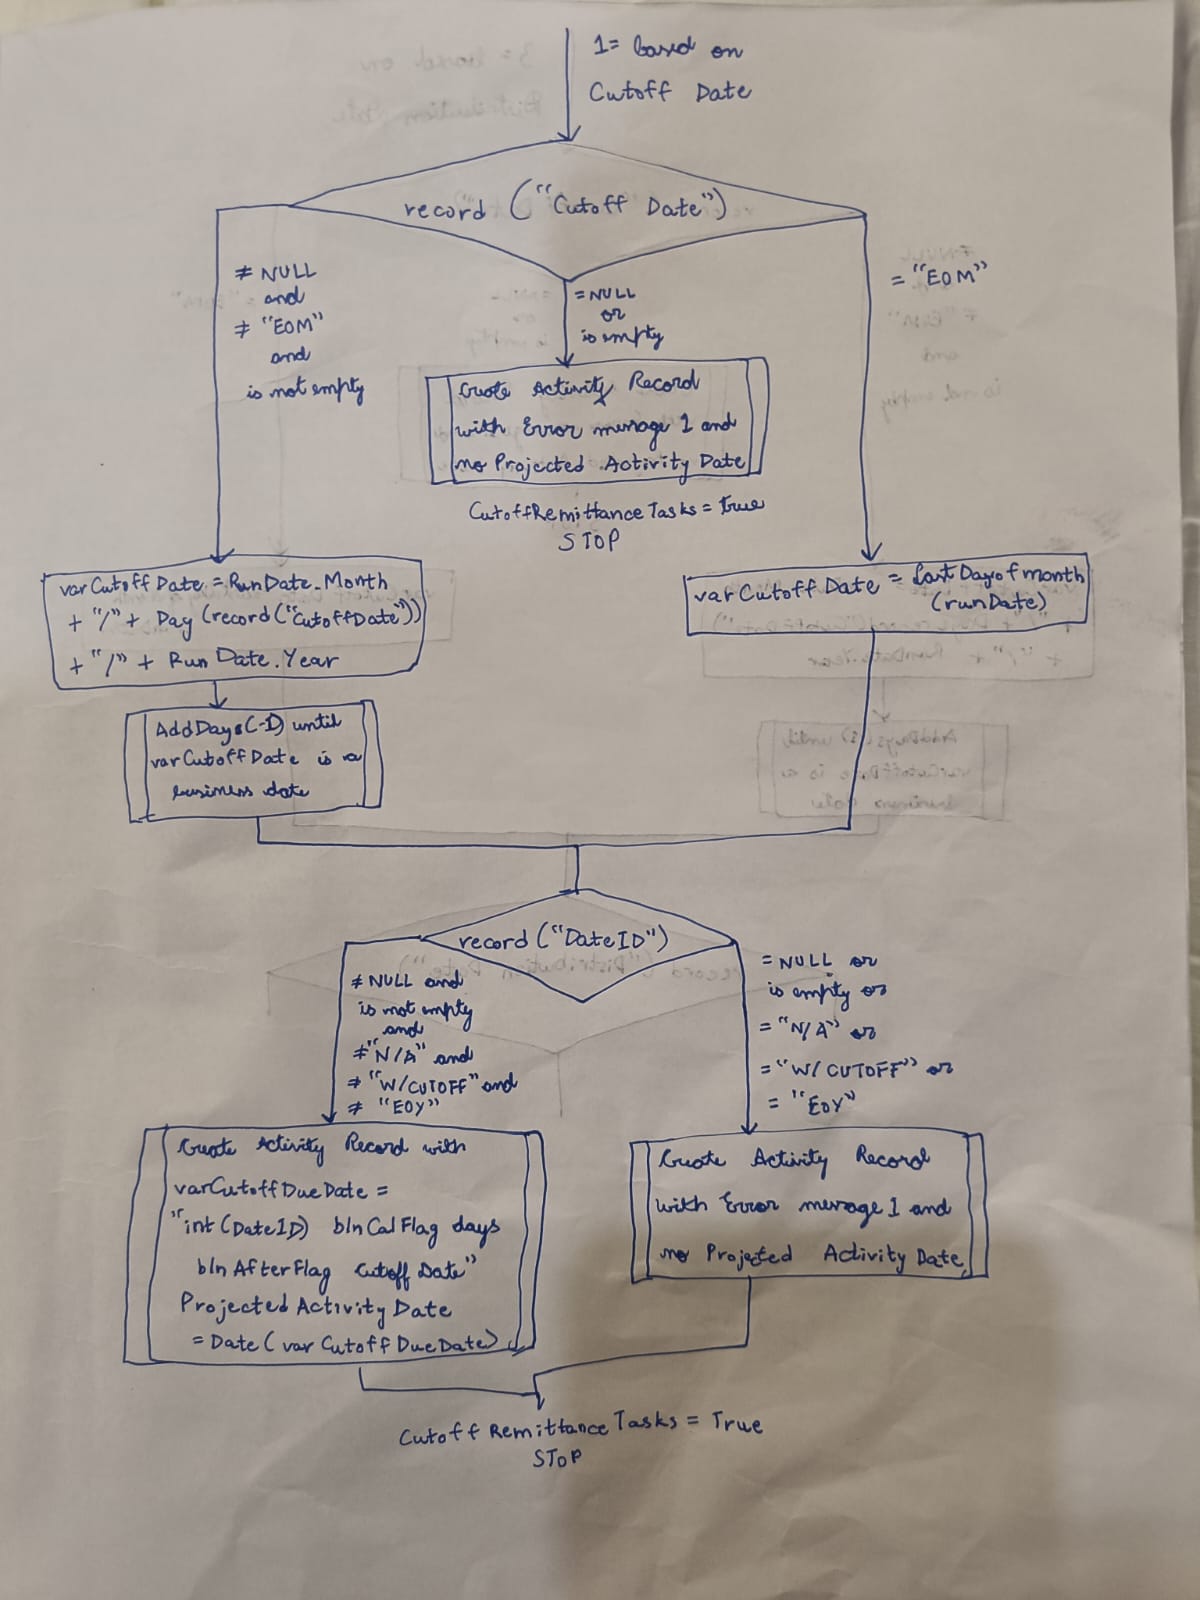 1= based on
Cutoff Date
record ("Cutoff Date")
≠ NULL
and
≠ "EOM"
and
is not empty
=NULL
or
is empty
= "EOM"
Create Activity Record
with Error message 1 and
no Projected Activity Date
CutoffRemittanceTasks = true
STOP
varCutoffDate = RunDate.Month
+ "/" + Day (record("CutoffDate"))
+ "/" + Run Date.Year
varCutoffDate = LastDayofmonth
(runDate)
AddDays(-1) until
varCutoffDate is a
business date
record ("DateID")
≠ NULL and
is not empty
and
≠"N/A" and
≠ "W/CUTOFF" and
≠ "EOY"
= NULL or
is empty or
= "N/A" or
= "W/CUTOFF" or
= "EOY"
Create Activity Record with
varCutoffDueDate =
"int(DateID) blnCalFlag days
blnAfterFlag Cutoff Date"
Projected Activity Date
= Date (varCutoffDueDate)
Create Activity Record
with Error message 1 and
no Projected Activity Date
Cutoff Remittance Tasks = True
STOP